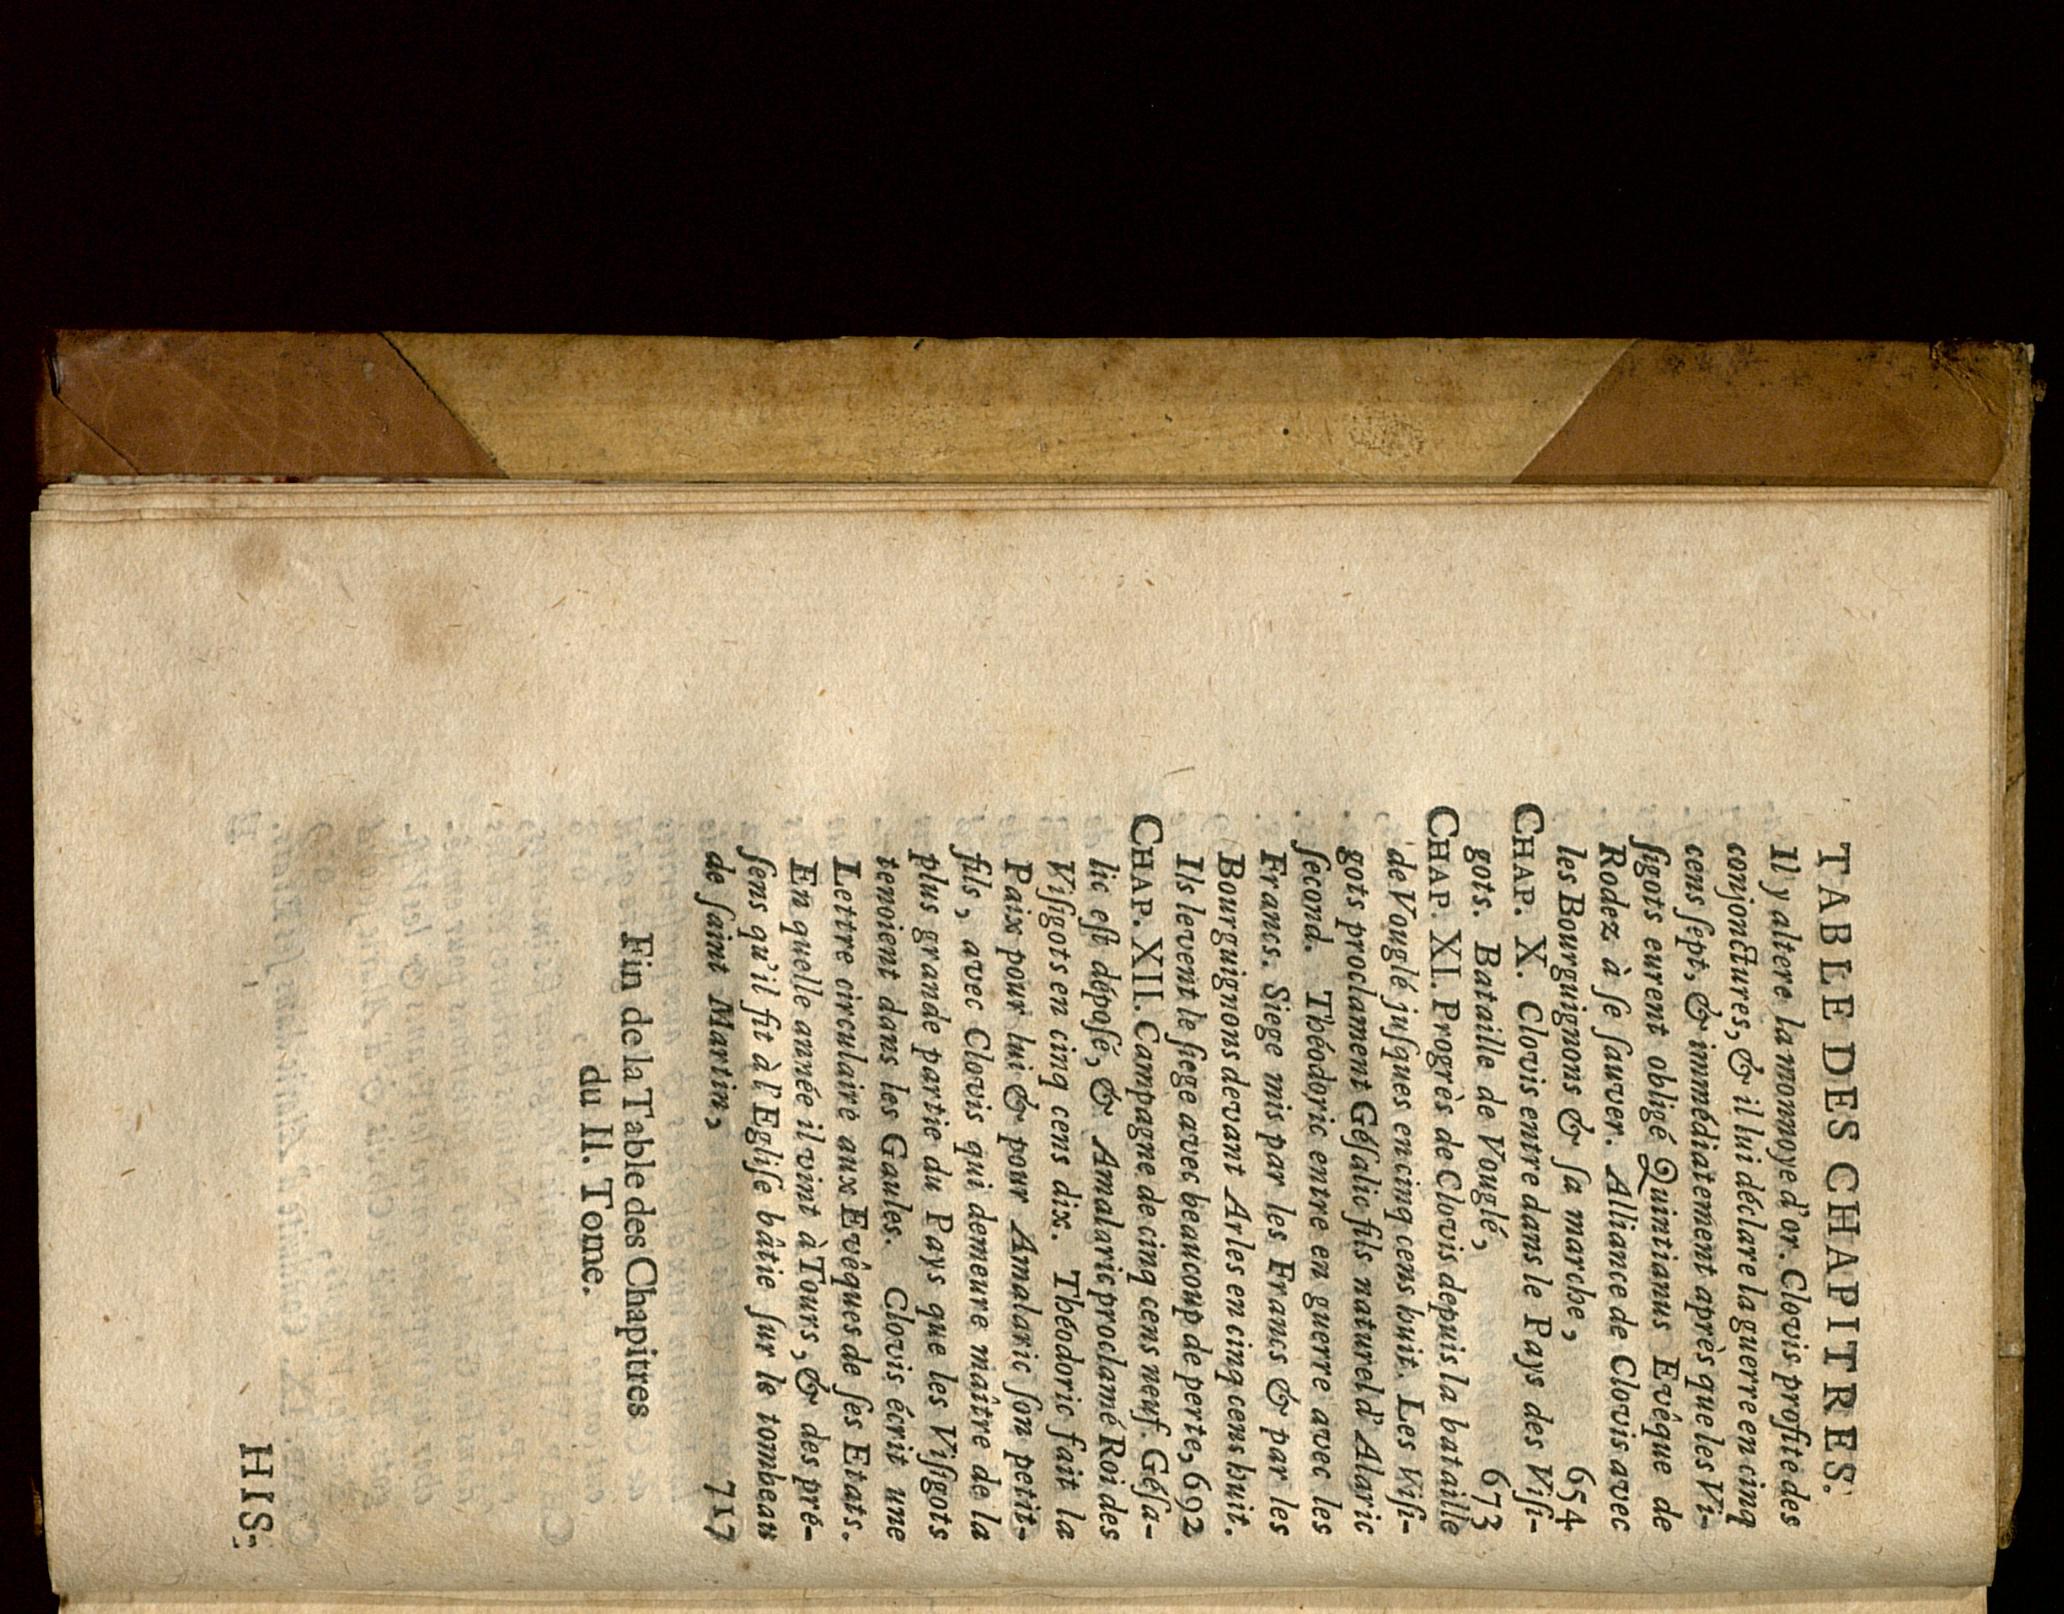 TABLE DES CHAPITRES.
Il y altere la monnoye d'or. Clovis profite des
conjonctures, & il lui déclare la guerre en cinq
cens ſept, & immédiatement après que les Vi-
ſigots eurent obligé Quintianus Evêque de
Rodez à ſe ſauver. Alliance de Clovis avec
les Bourguignons & ſa marche, 654
CHAP. X. Clovis entre dans le Pays des Viſi-
gots. Bataille de Vouglé, 673
CHAP. XI. Progrès de Clovis depuis la bataille
de Vouglé juſques en cinq cens huit. Les Viſi-
gots proclament Géſalic fils naturel d'Alaric
ſecond. Théodoric entre en guerre avec les
Francs. Siege mis par les Francs & par les
Bourguignons devant Arles en cinq cens huit.
Ils levent le ſiege avec beaucoup de perte, 692
CHAP. XII. Campagne de cinq cens neuf. Géſa-
lic eſt dépoſé, & Amalaric proclamé Roi des
Viſigots en cinq cens dix. Théodoric fait la
Paix pour lui & pour Amalaric ſon petit-
fils, avec Clovis qui demeure maître de la
plus grande partie du Pays que les Viſigots
tenoient dans les Gaules. Clovis écrit une
Lettre circulaire aux Evêques de ſes Etats.
En quelle année il vint à Tours, & des pré-
ſens qu'il fit à l'Egliſe bâtie ſur le tombeau
de ſaint Martin, 717
Fin de la Table des Chapitres
du II. Tome.
HIS-